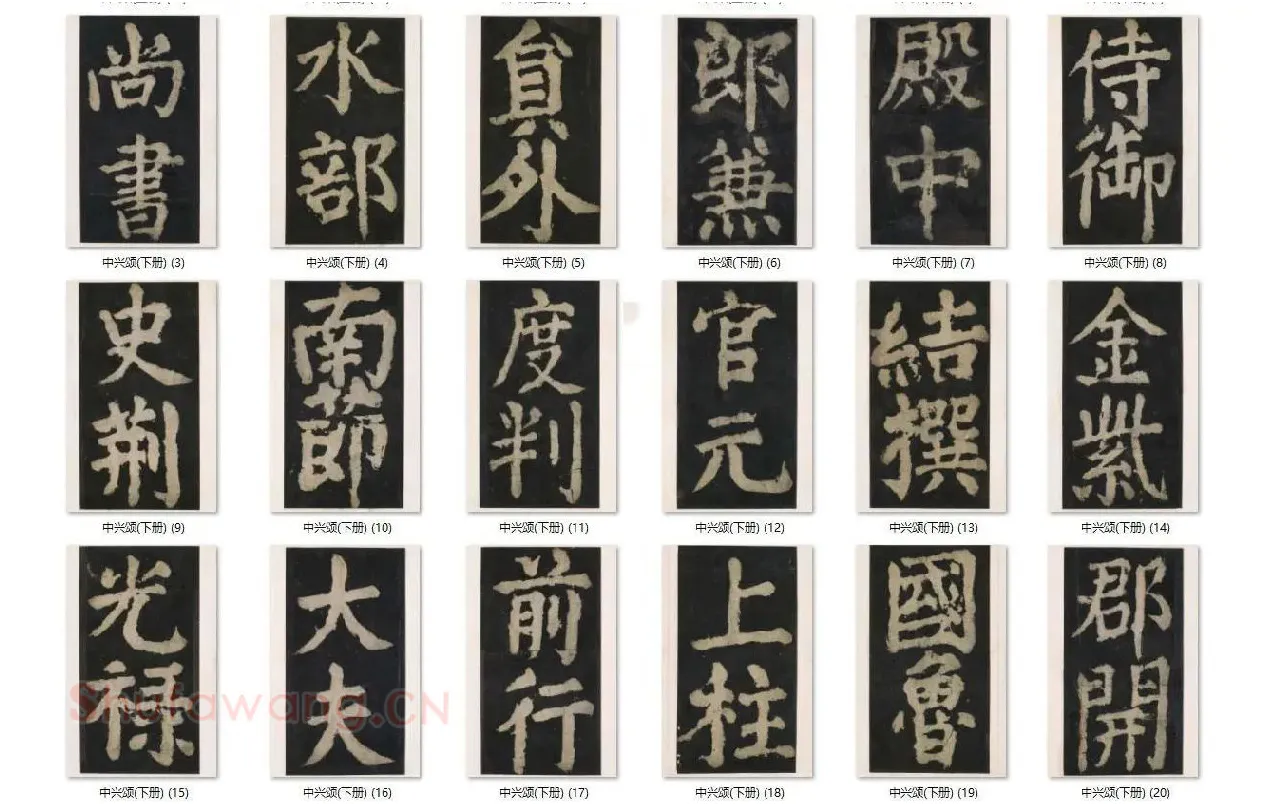 尚書
水部
貟外
郎兼
殿中
侍御
中兴颂(下册) (3)
中兴颂(下册) (4)
中兴颂(下册) (5)
中兴颂(下册) (6)
中兴颂(下册) (7)
中兴颂(下册) (8)
史荆
南莭
度判
官元
結撰
金紫
中兴颂(下册) (9)
中兴颂(下册) (10)
中兴颂(下册) (11)
中兴颂(下册) (12)
中兴颂(下册) (13)
中兴颂(下册) (14)
光祿
大夫
前行
上柱
國魯
郡開
Shufawang.CN
中兴颂(下册) (15)
中兴颂(下册) (16)
中兴颂(下册) (17)
中兴颂(下册) (18)
中兴颂(下册) (19)
中兴颂(下册) (20)